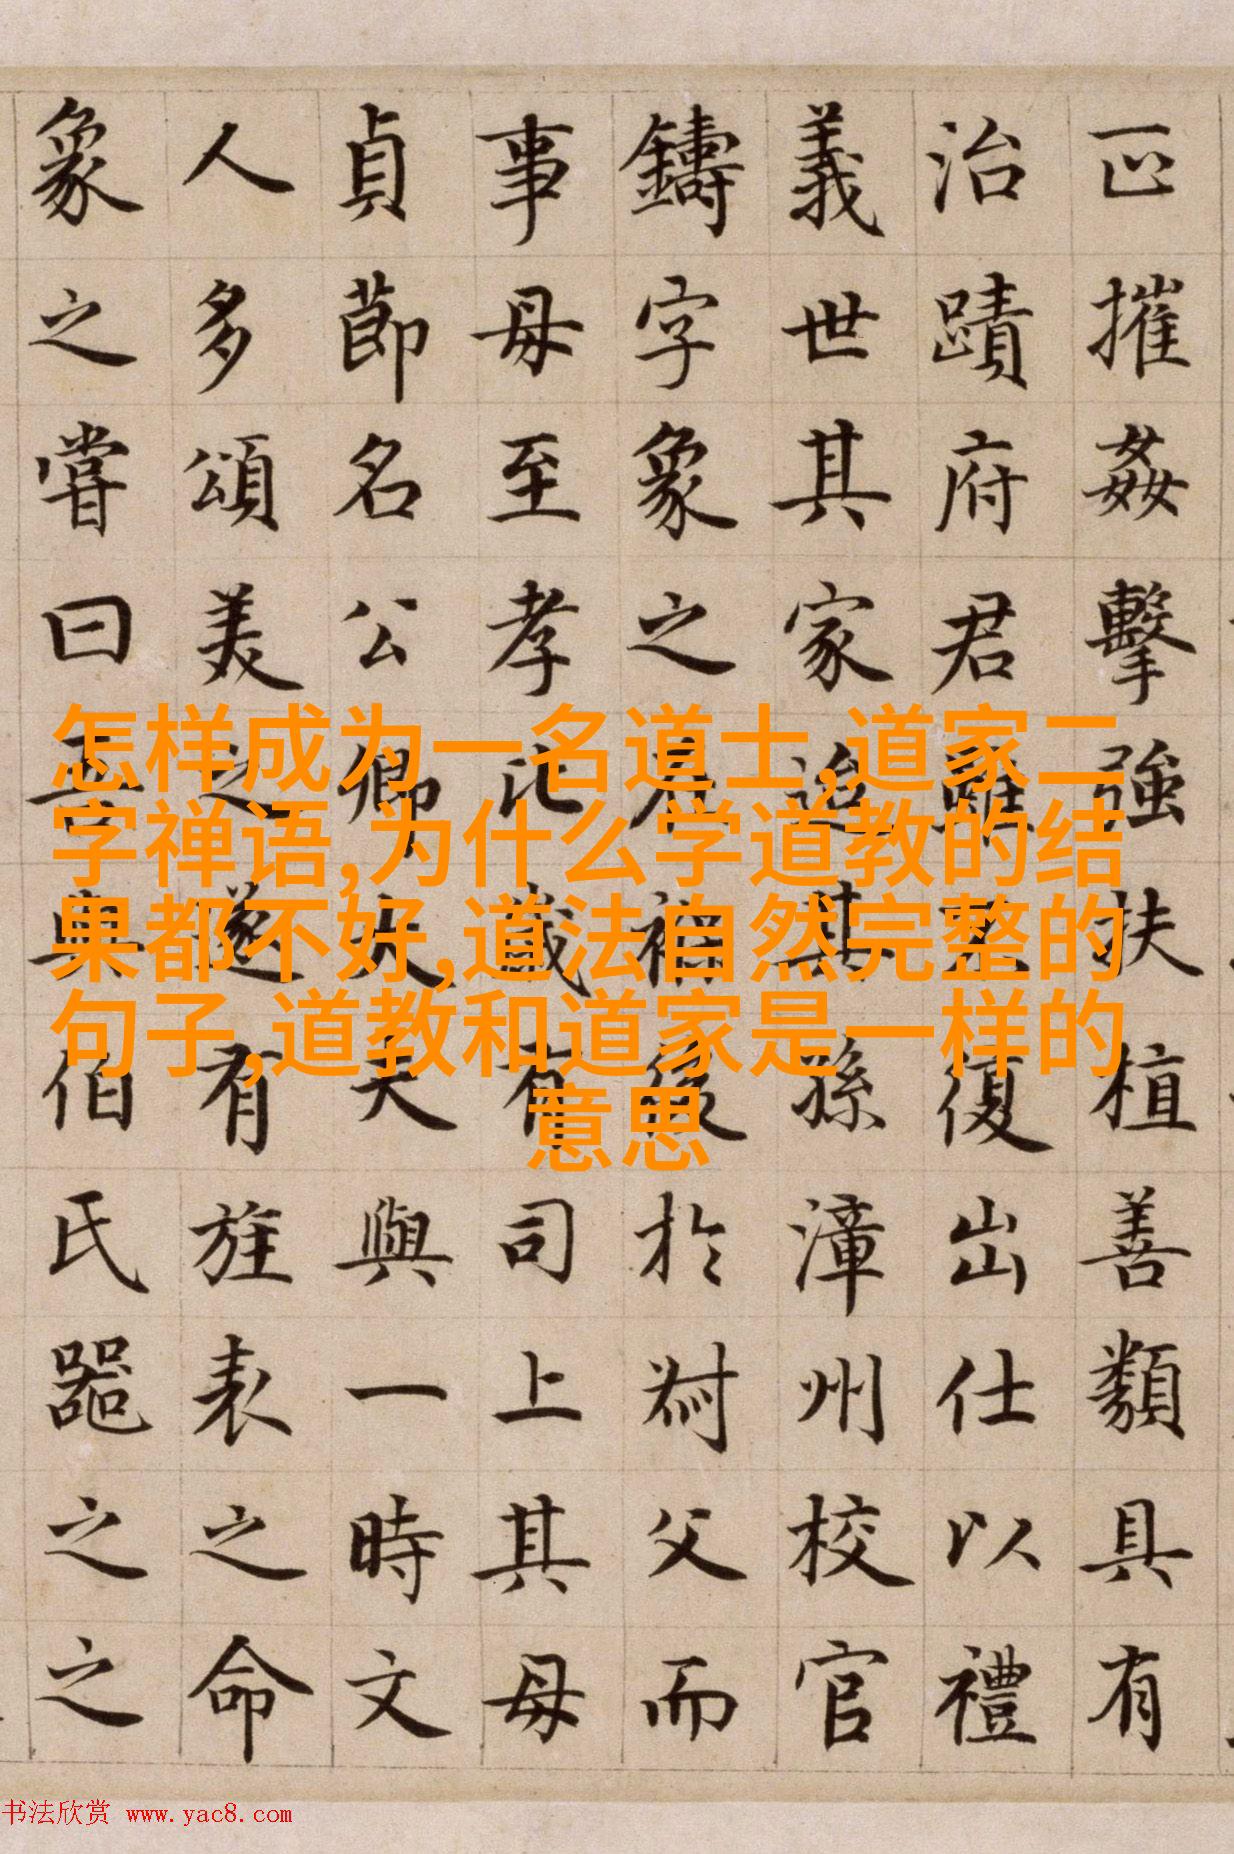 怎样成为一名道士,道家二
字禅语,为什么学道教的结
果都不好,道法自然完整的
句子,道教和道家是一样的
意思
摧姦擊強扶植善類具有
治蹟府君雖復出仕以禮
義世其家迨其孫漳州校官
鑄字象之後於父而
事母至孝比歲有司上其母
貞節名公卿大夫與一時文
人多頌美之遂有旌表之命
象之嘗曰吾與伯氏器之之
书法欣赏 www.yac8.com